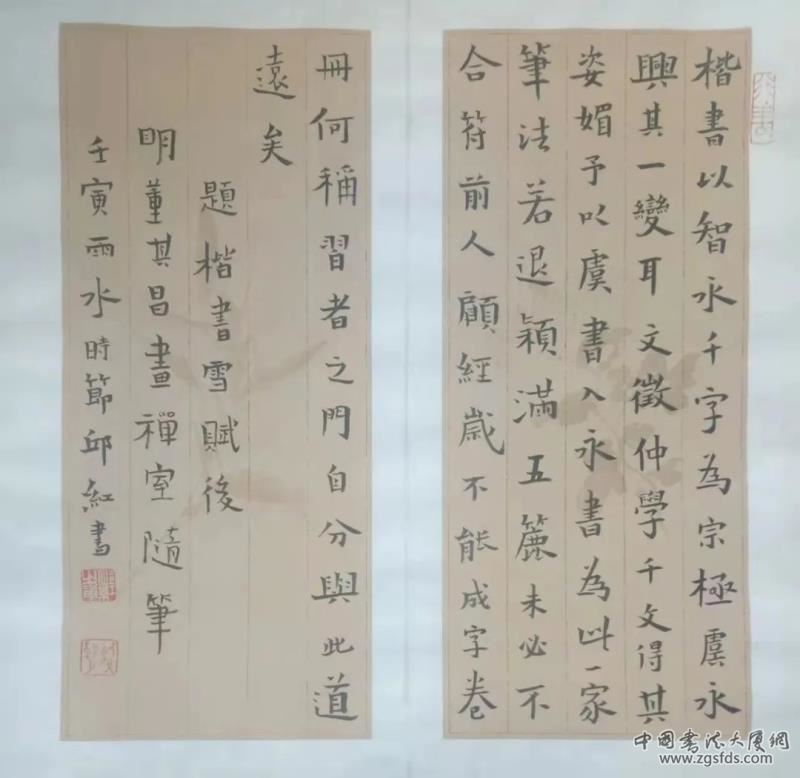 楷書以智永千字為宗極虞永
興其一變耳文徵仲學千文得其
姿媚予以虞書入永書為此一家
筆法若退穎滿五簏未必不
合符前人顧經歲不能成字卷
冊何稱習者之門自分與此道
遠矣
題楷書雪賦後
明董其昌畫禪室隨筆
壬寅雨水時節邱紅書
中國書法大厦網
www.zgsfds.com